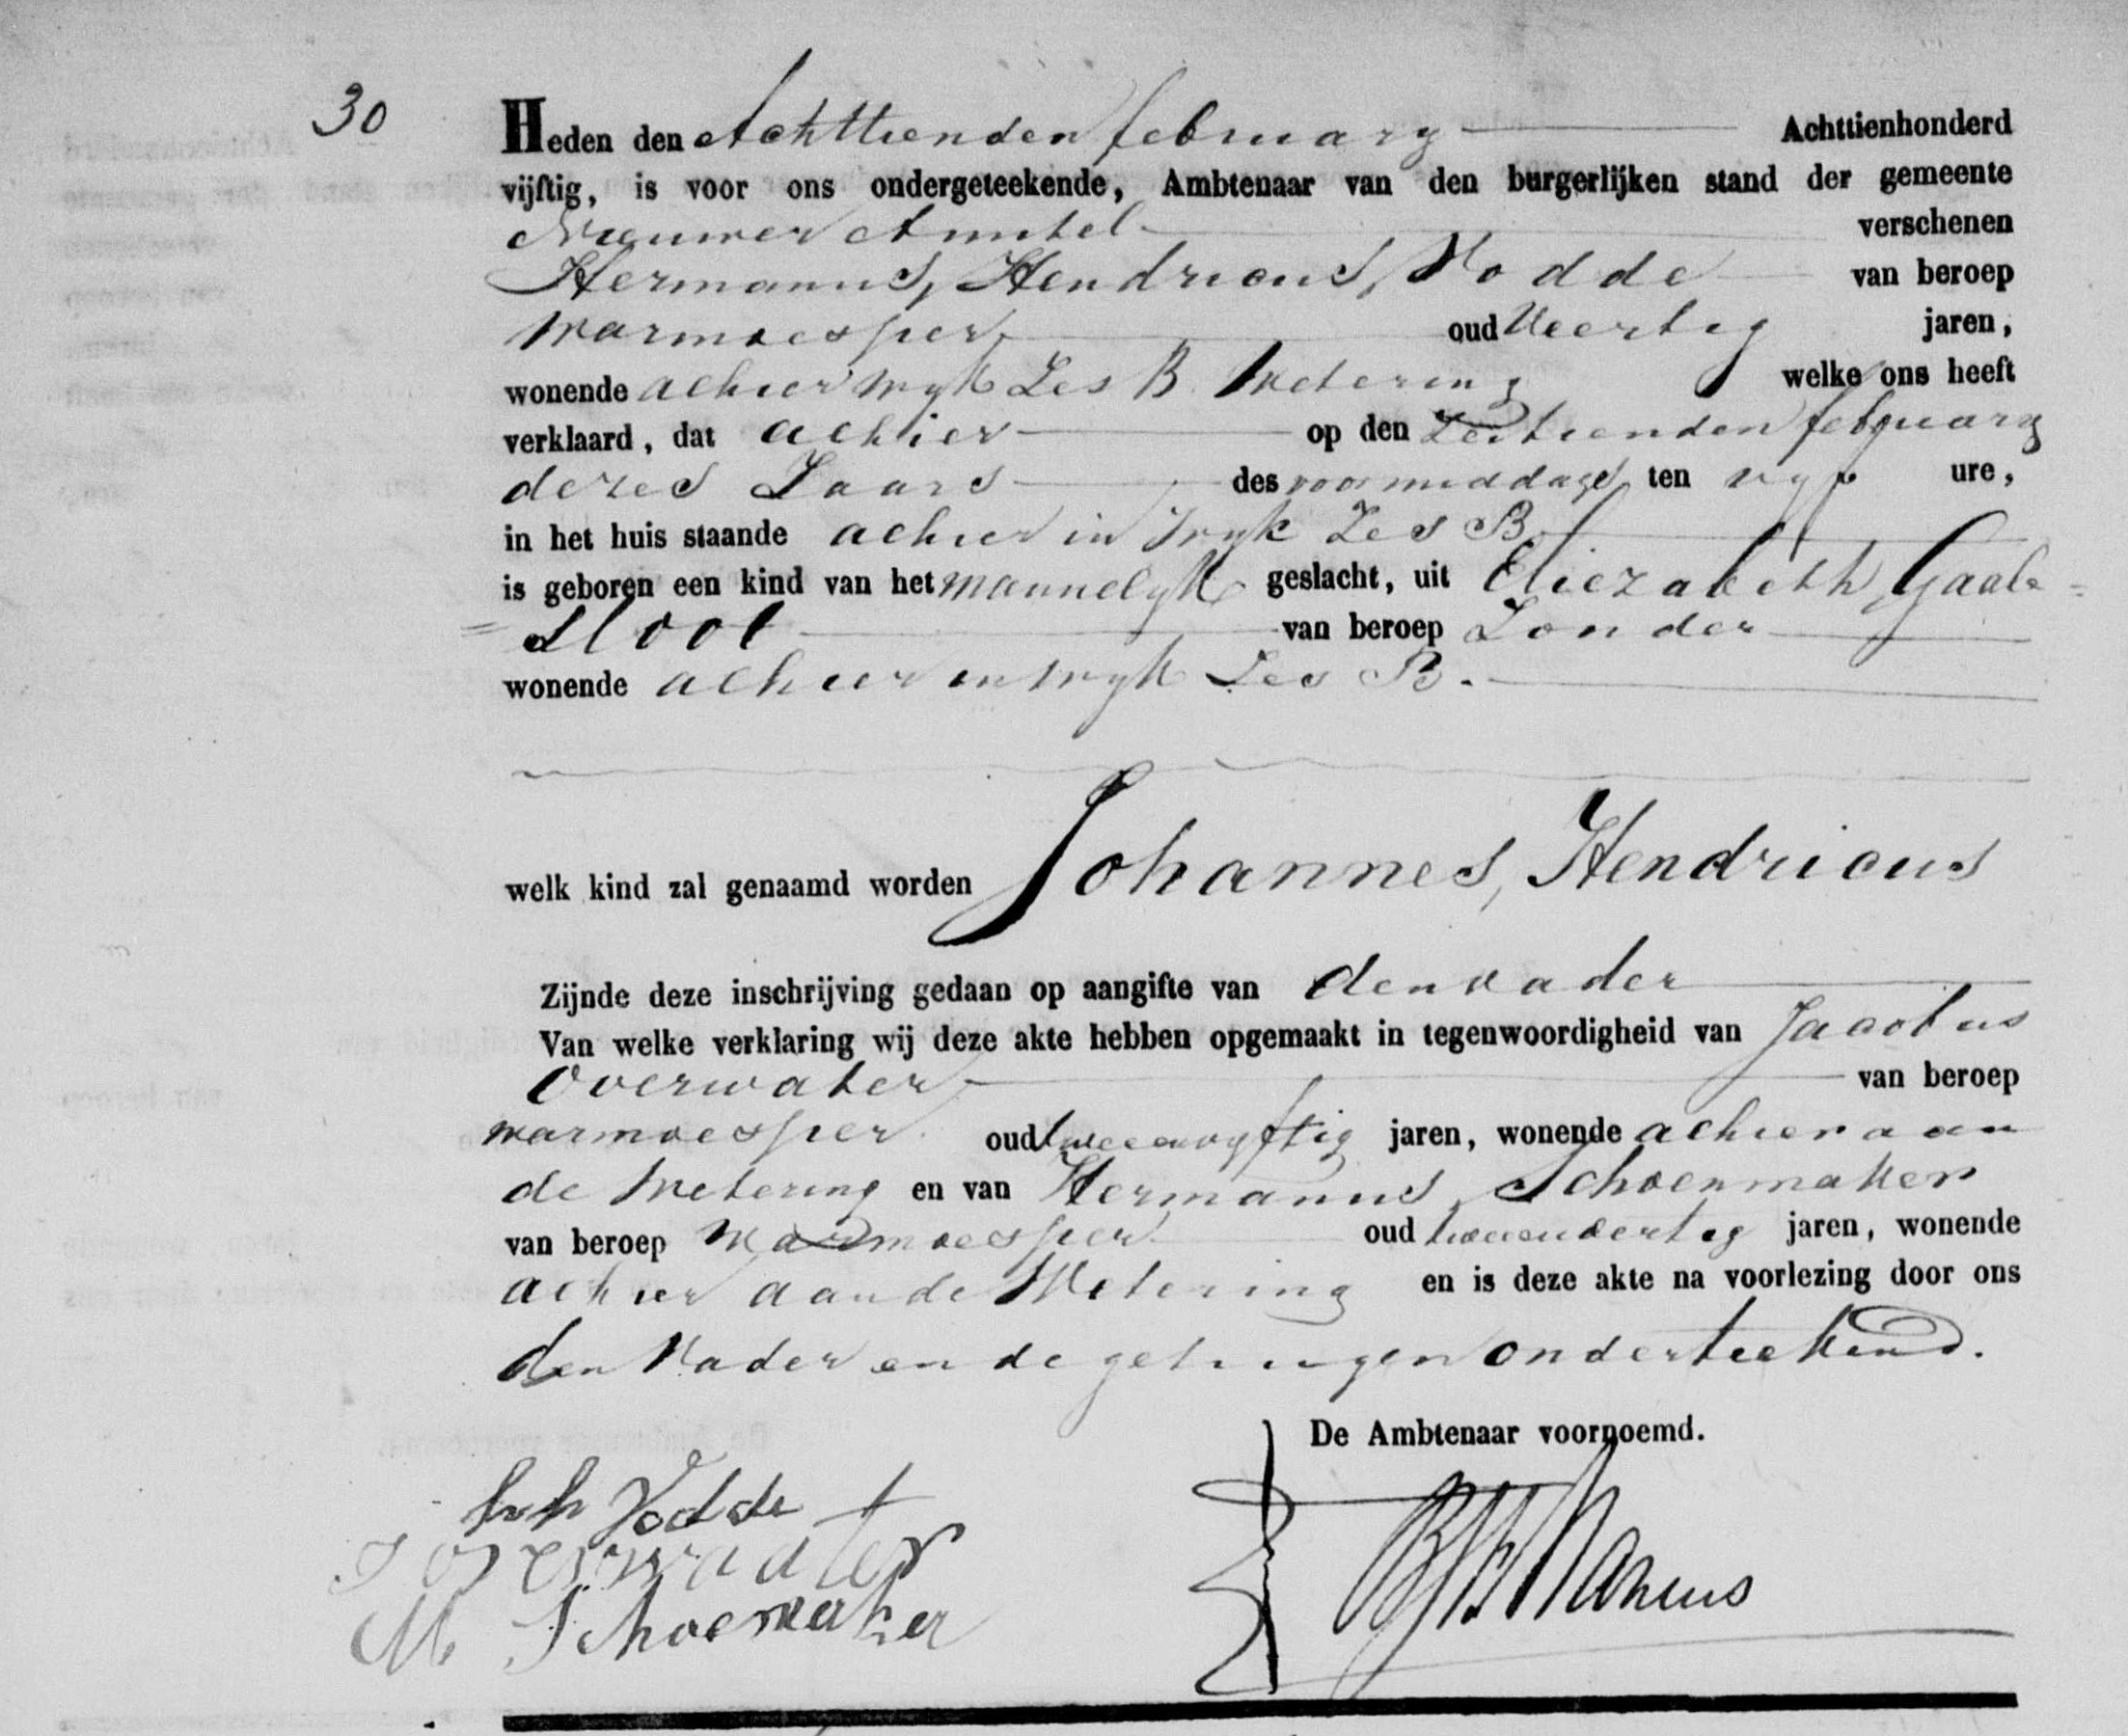 30
Heden den Achttienden february Achttienhonderd
vijftig, is voor ons ondergeteekende, Ambtenaar van den burgerlijken stand der gemeente
Nieuwer Amstel verschenen
Hermanus, Hendricus, Vodde van beroep
warmoesper oud Veertig jaren,
wonende alhier Wyk Zes B. Wetering welke ons heeft
verklaard, dat alhier op den Zestienden february
dezes Jaars des voormiddags ten vyf ure,
in het huis staande alhier in Wyk Zes B.
is geboren een kind van het mannelyk geslacht, uit Eliezabeth, Gaal=
=Sloot van beroep Zonder
wonende alhier in wyk Zes B.
welk kind zal genaamd worden Johannes, Hendricus
Zijnde deze inschrijving gedaan op aangifte van den vader
Van welke verklaring wij deze akte hebben opgemaakt in tegenwoordigheid van Jacobus
Overwater van beroep
warmoesper oud tweeenvyftig jaren, wonende alhier aan
de Wetering en van Hermanus, Schoenmaker
van beroep warmoesper oud tweeendertig jaren, wonende
alhier aan de Wetering en is deze akte na voorlezing door ons
den Vader en de getuigen onderteekend.
De Ambtenaar voornoemd.
h h Vodde
J Overwaater
M Schoemaker